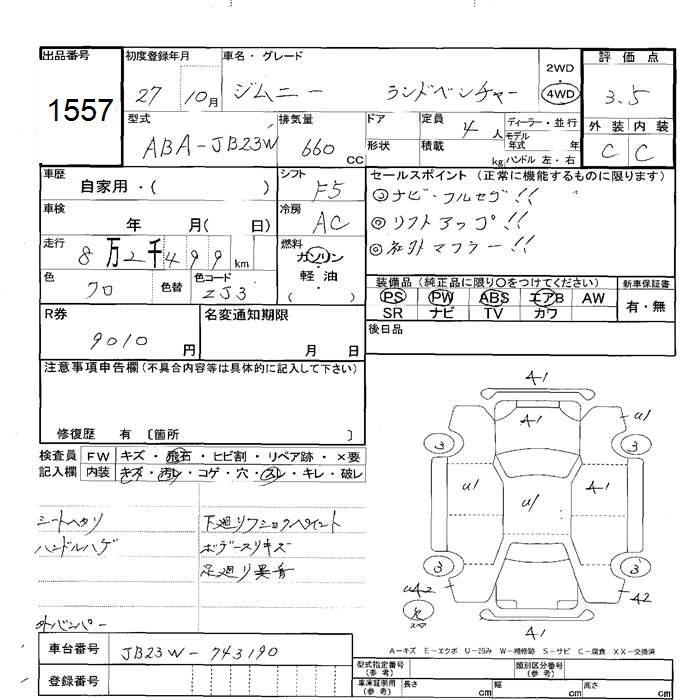 出品番号 初度登録年月 車名・グレード 2WD 評価点
1557 27 10月 ジムニー ランドベンチャー 4WD 3.5
型式 排気量 ドア 定員 4 人 ディーラー・並行 外装 内装
ABA-JB23W 660 CC 形状 積載 kg モデル年式 年 C C
ハンドル 左・右
車歴 シフト セールスポイント (正常に機能するものに限ります)
自家用・( ) F5 ◎ナビ・フルセグ!!
車検 冷房 ◎リフトアップ!!
年 月( 日) AC ◎社外マフラー!!
走行 8万2千499 km 燃料 ガソリン・軽油 ( )
色 クロ 色替 色コード ZJ3
装備品 (純正品に限り〇をつけてください) 新車保証書
PS PW ABS エアB AW 有・無
SR ナビ TV カワ
R券 9010 円 名変通知期限 月 日 後日品
注意事項申告欄 (不具合内容等は具体的に記入して下さい)
修復歴 有 〔箇所 〕
検査員 FW キズ・飛石・ヒビ割・リペア跡・×要
記入欄 内装 キズ・汚レ・コゲ・穴・スレ・キレ・破レ
シートヘタリ
ハンドルハゲ ボデースリキズ
足廻り異音
外バンパー
A1
A1 U1
3 3
U1 U1 A1
3 3
UA2 A2
スペア
A1
A-キズ E-エクボ U-凹み W-補修跡 S-サビ C-腐食 XX-交換済
車台番号 JB23W-743190
型式指定番号 (参考) 類別区分番号 (参考)
登録番号 車庫証明用 (参考) 長さ cm 幅 cm 高さ cm